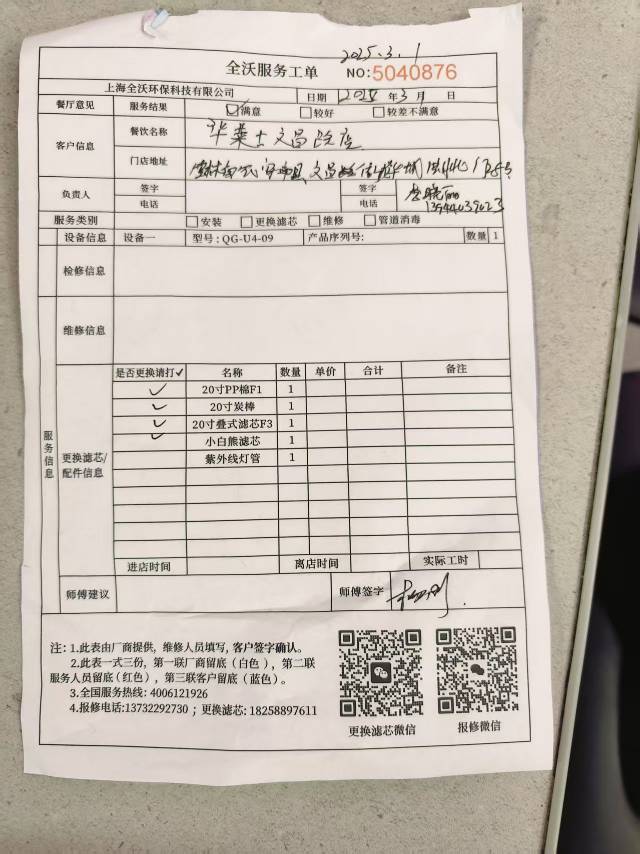 2025.3.1
全沃服务工单 NO:5040876
上海全沃环保科技有限公司 日期 2025 年 3 月 日
餐厅意见 服务结果 ☑满意 □较好 □较差不满意
客户信息 餐饮名称 华莱士文昌路店
门店地址 文昌
负责人 签字 签字 李晓丽
电话 电话
服务类别 □安装 □更换滤芯 □维修 □管道消毒
设备信息 设备一 型号:QG-U4-09 产品序列号: 数量 1
检修信息
维修信息
服务信息
更换滤芯/配件信息
是否更换请打✓ 名称 数量 单价 合计 备注
✓ 20寸PP棉F1 1
✓ 20寸炭棒 1
✓ 20寸叠式滤芯F3 1
✓ 小白熊滤芯 1
紫外线灯管 1
进店时间 离店时间 实际工时
师傅建议 师傅签字
注:1.此表由厂商提供，维修人员填写,客户签字确认。
2.此表一式三份，第一联厂商留底（白色），第二联
服务人员留底(红色)，第三联客户留底（蓝色）。
3.全国服务热线: 4006121926
4.报修电话:13732292730；更换滤芯: 18258897611
更换滤芯微信 报修微信